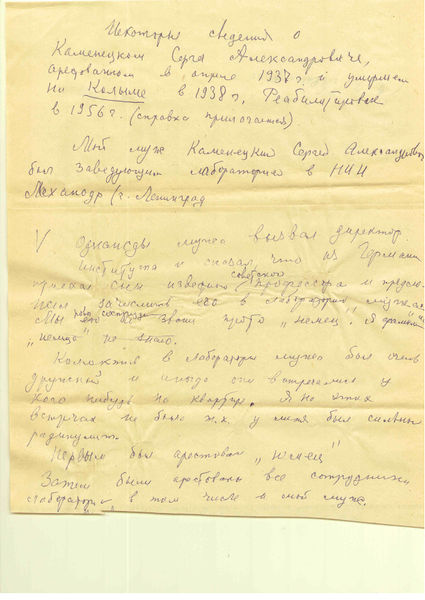 Некоторые сведения о
Каменецком Сергее Александровиче,
арестованном в апреле 1937 г и умершем
на Колыме в 1938 г, Реабилитирован
в 1956 г. (справка прилагается).
Мой муж Каменецкий Сергей Александрович
был заведующим лабораторией в НИИ
Механобр (г. Ленинград
V Однажды мужа вызвал директор
института и сказал, что из Германии
советского
приехал сын известного профессора и
зачислить его в лабораторию мужа.
Мы его все звали просто "немец". Я фамилии
"немца" не знаю.
Коллектив в лаборатории мужа был очень
дружный и иногда они встречались у
кого нибудь на квартире. Я на этих
встречах не была т.к. у меня был сильный
радикулит.
Первым был арестован "немец"
Затем были арестованы все сотрудники
лаборатории, в том числе и мой муж.